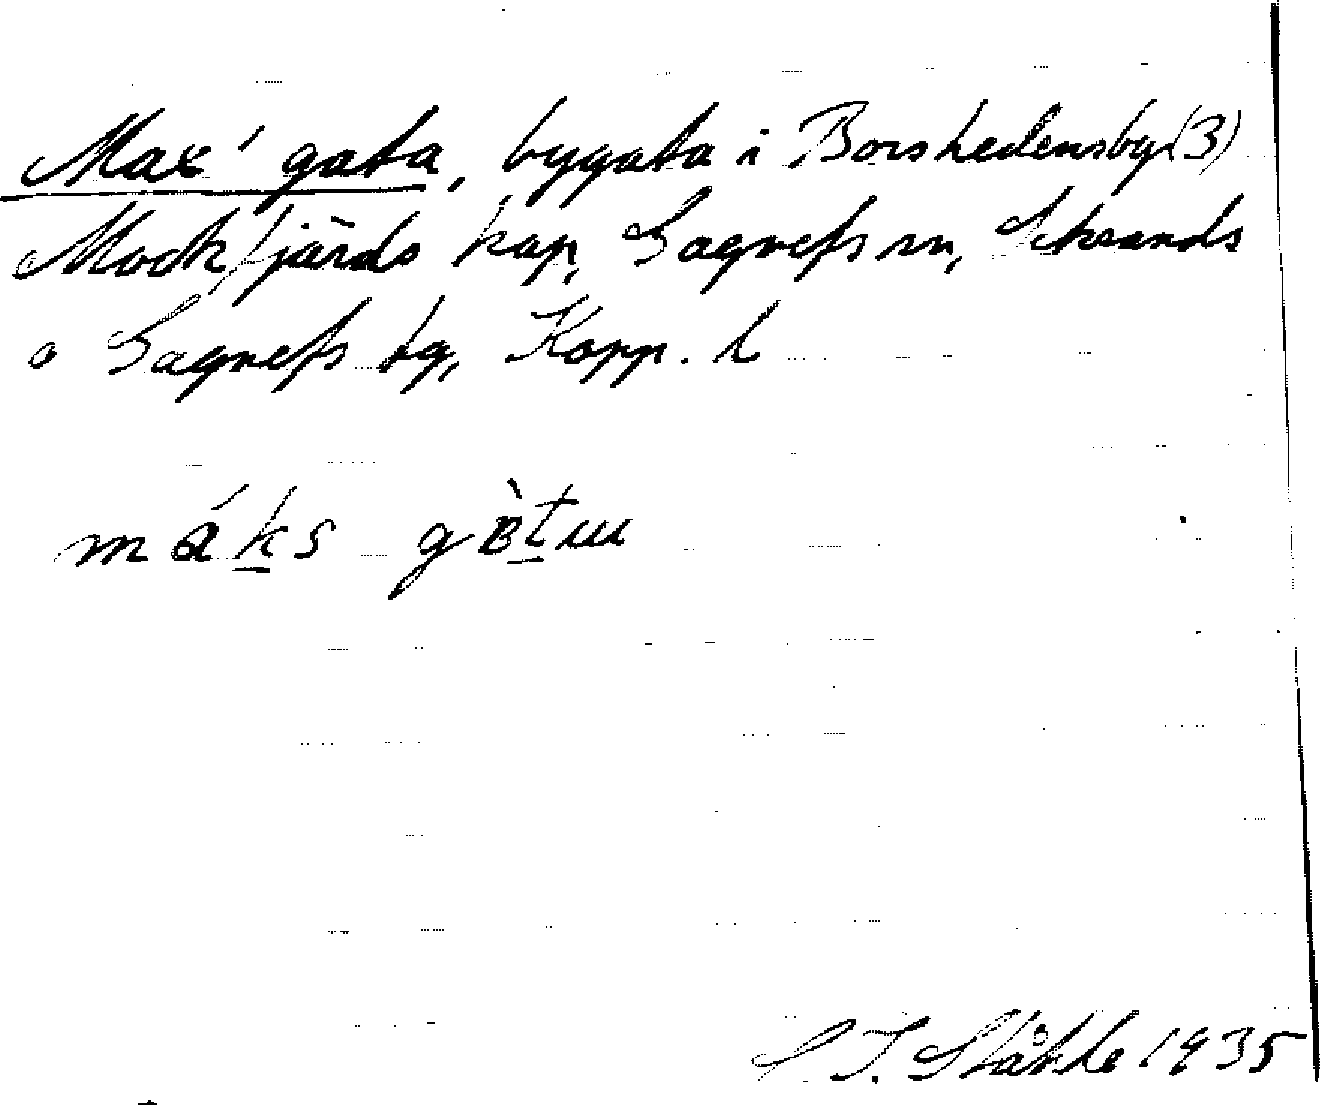 Max' gata, bygata i Borshedensby (3)
Mockfjärds kap, Gagnefs sn, Strands
o Gagnefs tg, Kopp. l
máks gàtuu
C. I. Ståhle 1935